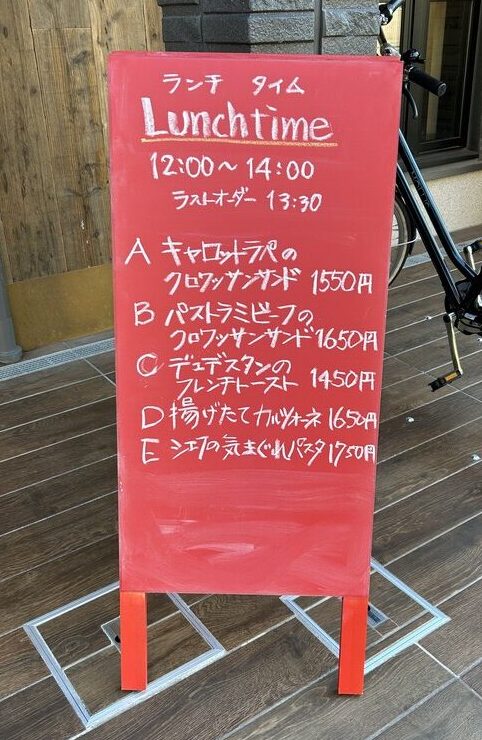 ランチ タイム
Lunchtime
12:00～14:00
ラストオーダー 13:30
A キャロットラペの
クロワッサンサンド 1550円
B パストラミビーフの
クロワッサンサンド 1650円
C デュデスタンの
フレンチトースト 1450円
D 揚げたてカルツォーネ 1650円
E シェフの気まぐれパスタ 1750円